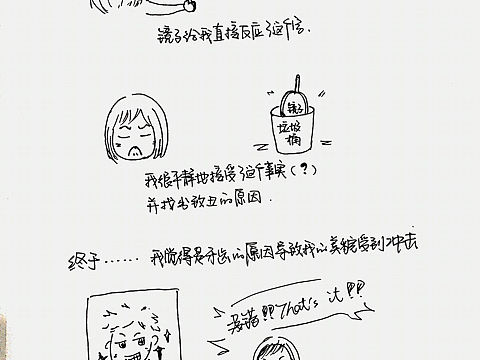 镜子给我直接反应了这个信息.
镜子
垃圾
桶
我很平静地接受了这个事实(?)
并找出致丑的原因.
终于…… 我觉得是牙齿的原因导致我的美貌受到冲击
没错!!That's it!!